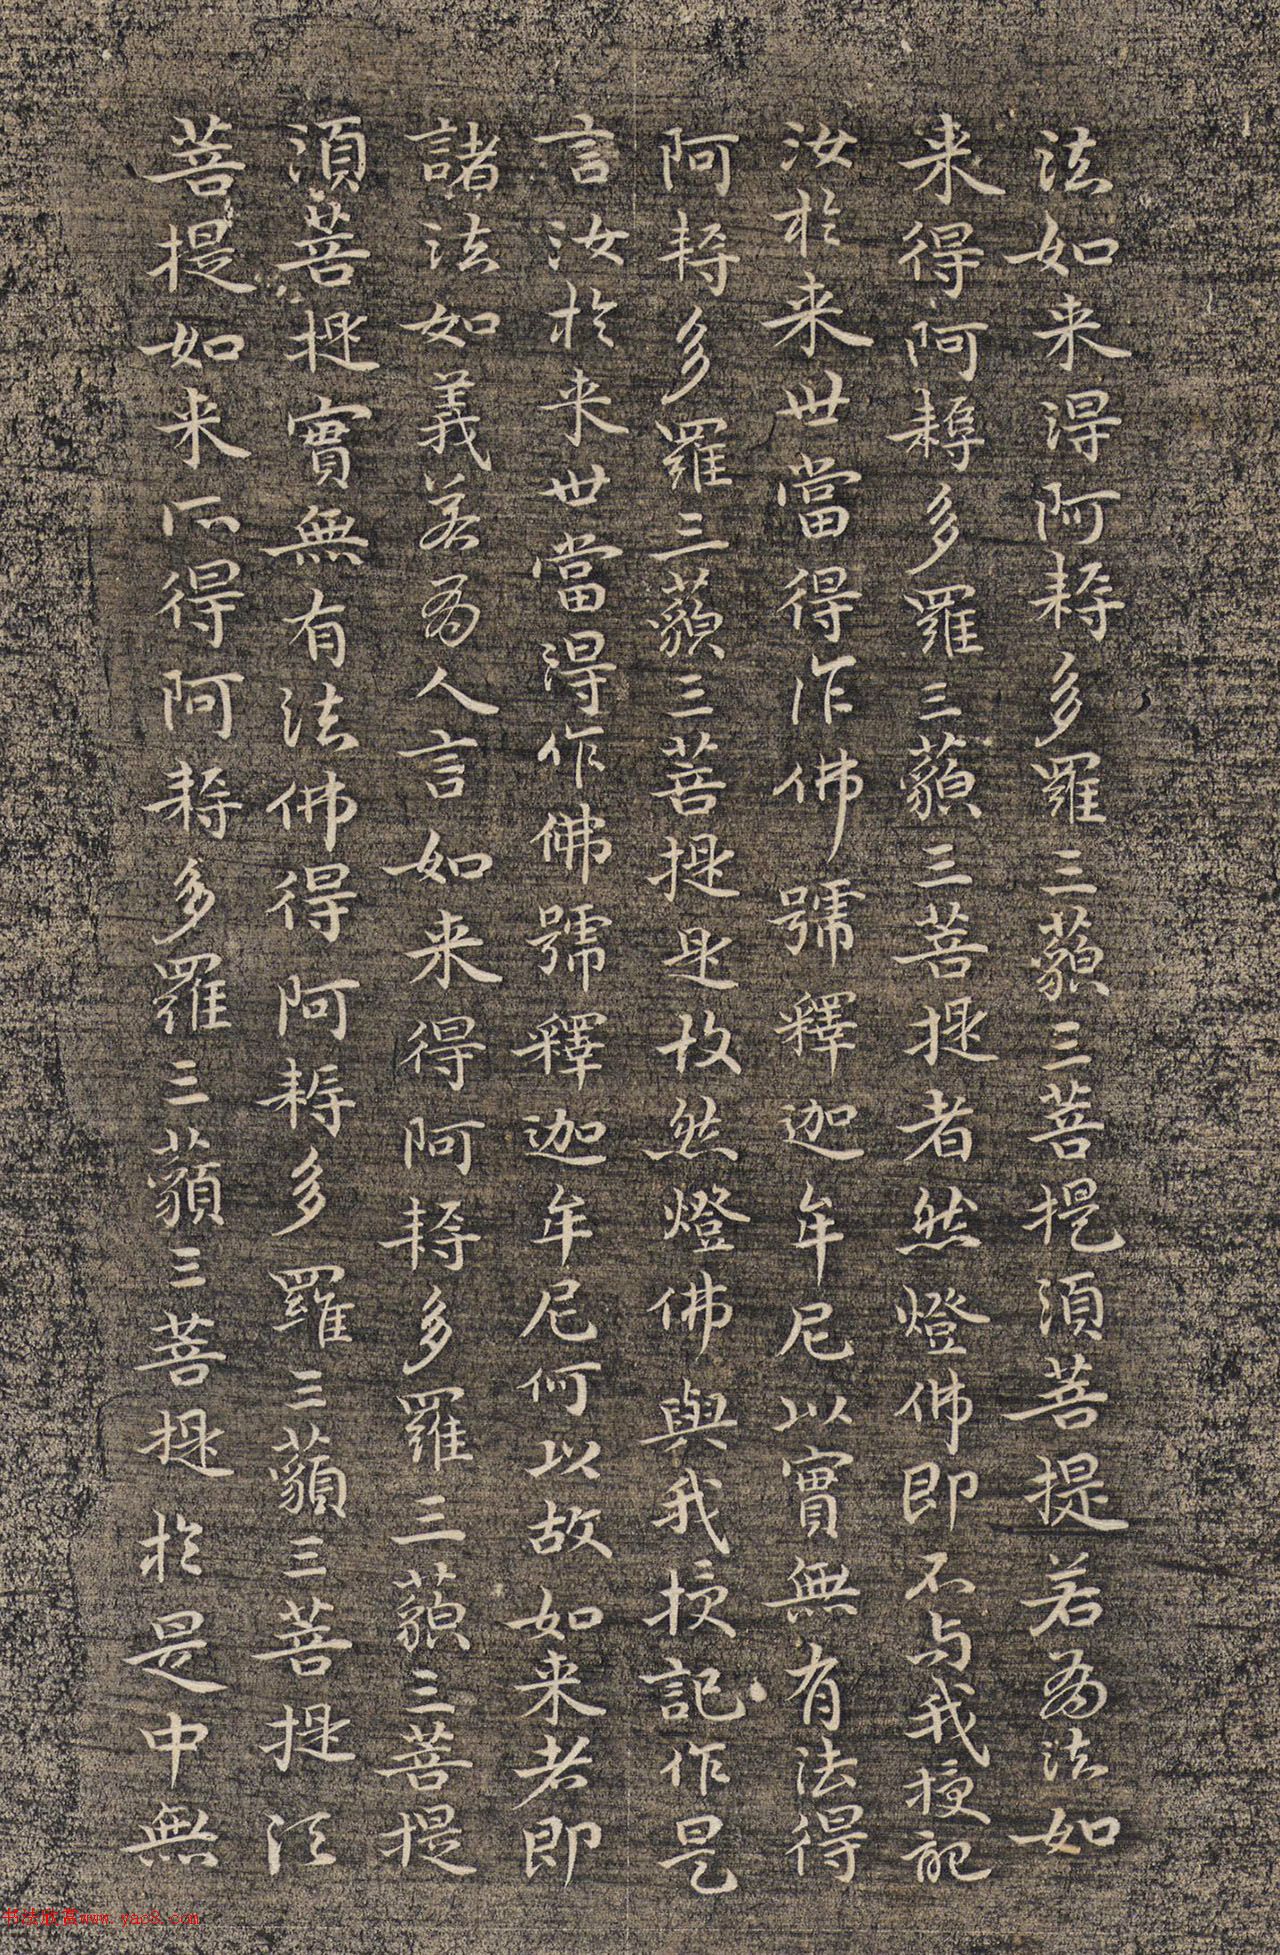 法如来得阿耨多羅三藐三菩提須菩提若為法如
来得阿耨多羅三藐三菩提者然燈佛即不与我授記
汝於来世當得作佛號釋迦牟尼以實無有法得
阿耨多羅三藐三菩提是故然燈佛與我授記作是
言汝於来世當得作佛號釋迦牟尼何以故如来者即
諸法如義若為人言如来得阿耨多羅三藐三菩提
須菩提實無有法佛得阿耨多羅三藐三菩提須
菩提如来所得阿耨多羅三藐三菩提於是中無
书法欣赏www.yac8.com